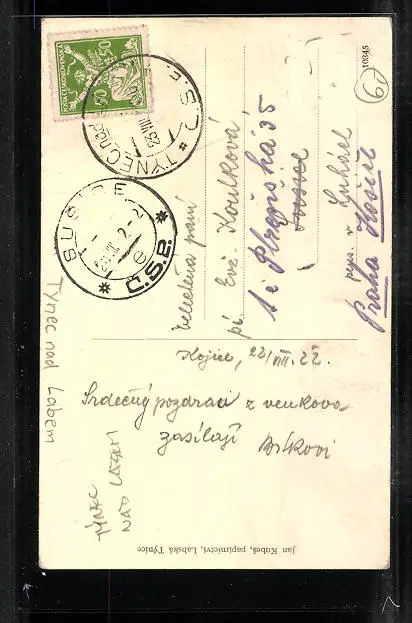 POŠTA ČESKOSLOVENSKÁ
50 50
TÝNEC nad
23 VIII
Č.S.P.
SUŠICE
2-2
e
* Č.S.P. *
10345
Velectěná paní
pí. Evž. Koulková
Plzeňská 35
Praha Košíře
Kojice, 22/VIII. 22.
Srdečný pozdrav z venkova
zasílají
Týnec nad Labem
TÝNEC
NAD LABEM
Jan Kubeš, papírnictví, Labská Týnice